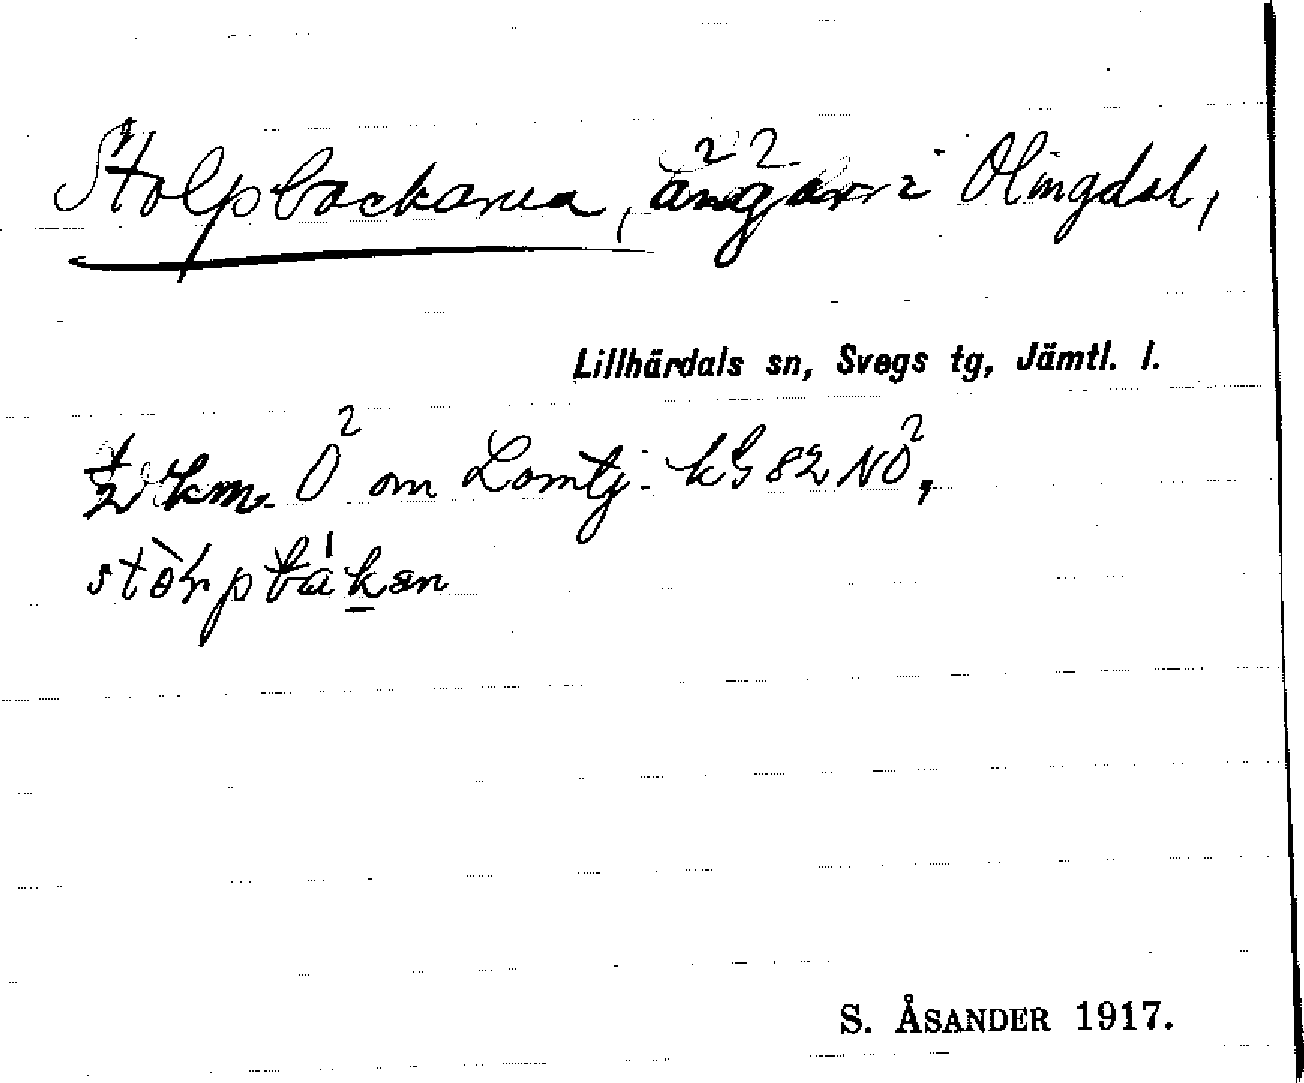 Stolpbackarna, ängar i Olingdal,
Lillhärdals sn, Svegs tg, Jämtl. l.
½ km. O om Lomtj. kG 82 NO,
stòrpbákan
S. ÅSANDER 1917.